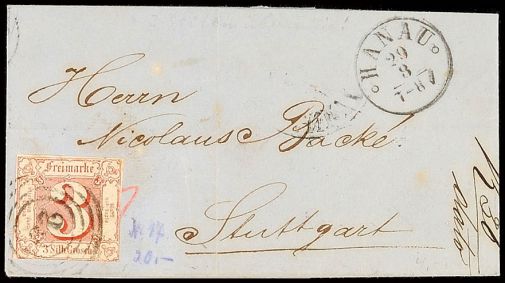 HANAU
29
3
7-8
Herrn
Nicolaus Backé
Stuttgart
Freimarke
3
3 Silb. Grosch.
№ 17
20.–